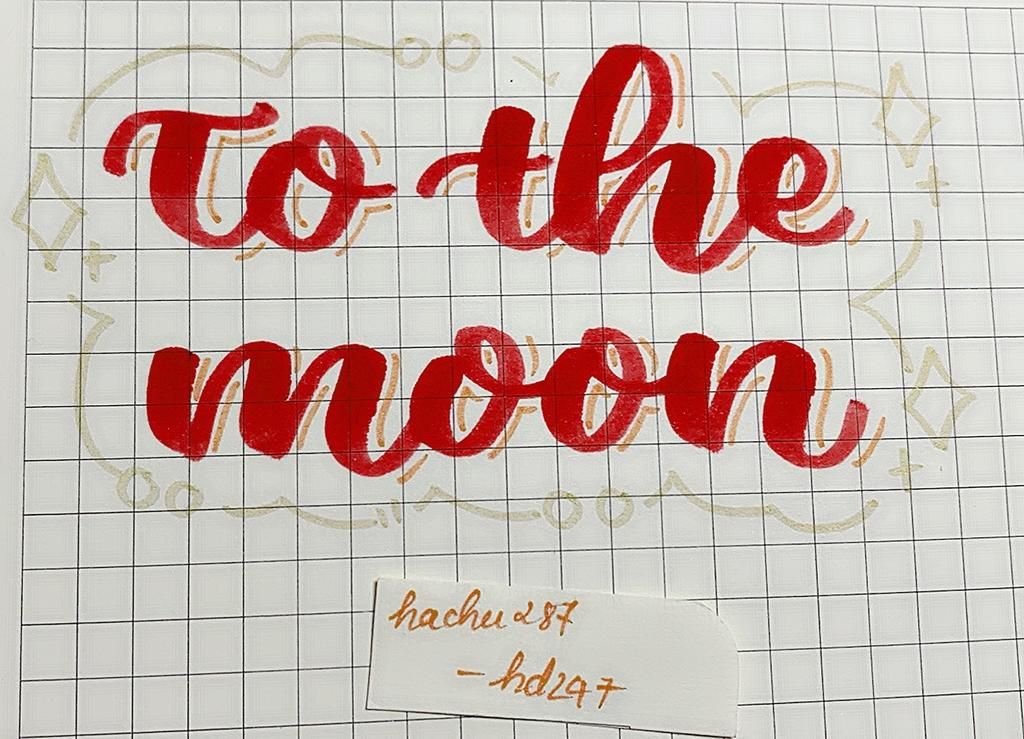 to the
moon
hachu287
-hd247